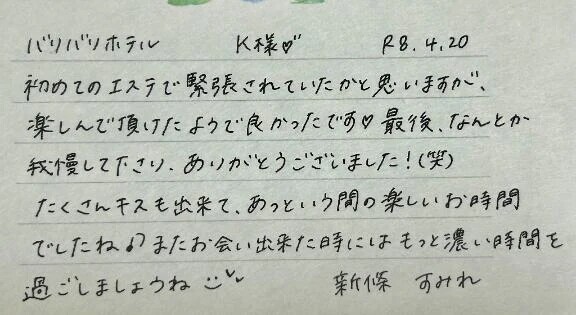 バリバリホテル K様♡ R8.4.20
初めてのエステで緊張されていたかと思いますが、
楽しんで頂けたようで良かったです♡最後、なんとか
我慢して下さり、ありがとうございました!(笑)
たくさんキスも出来て、あっという間の楽しいお時間
でしたね♪またお会い出来た時にはもっと濃い時間を
過ごしましょうね 新條 すみれ